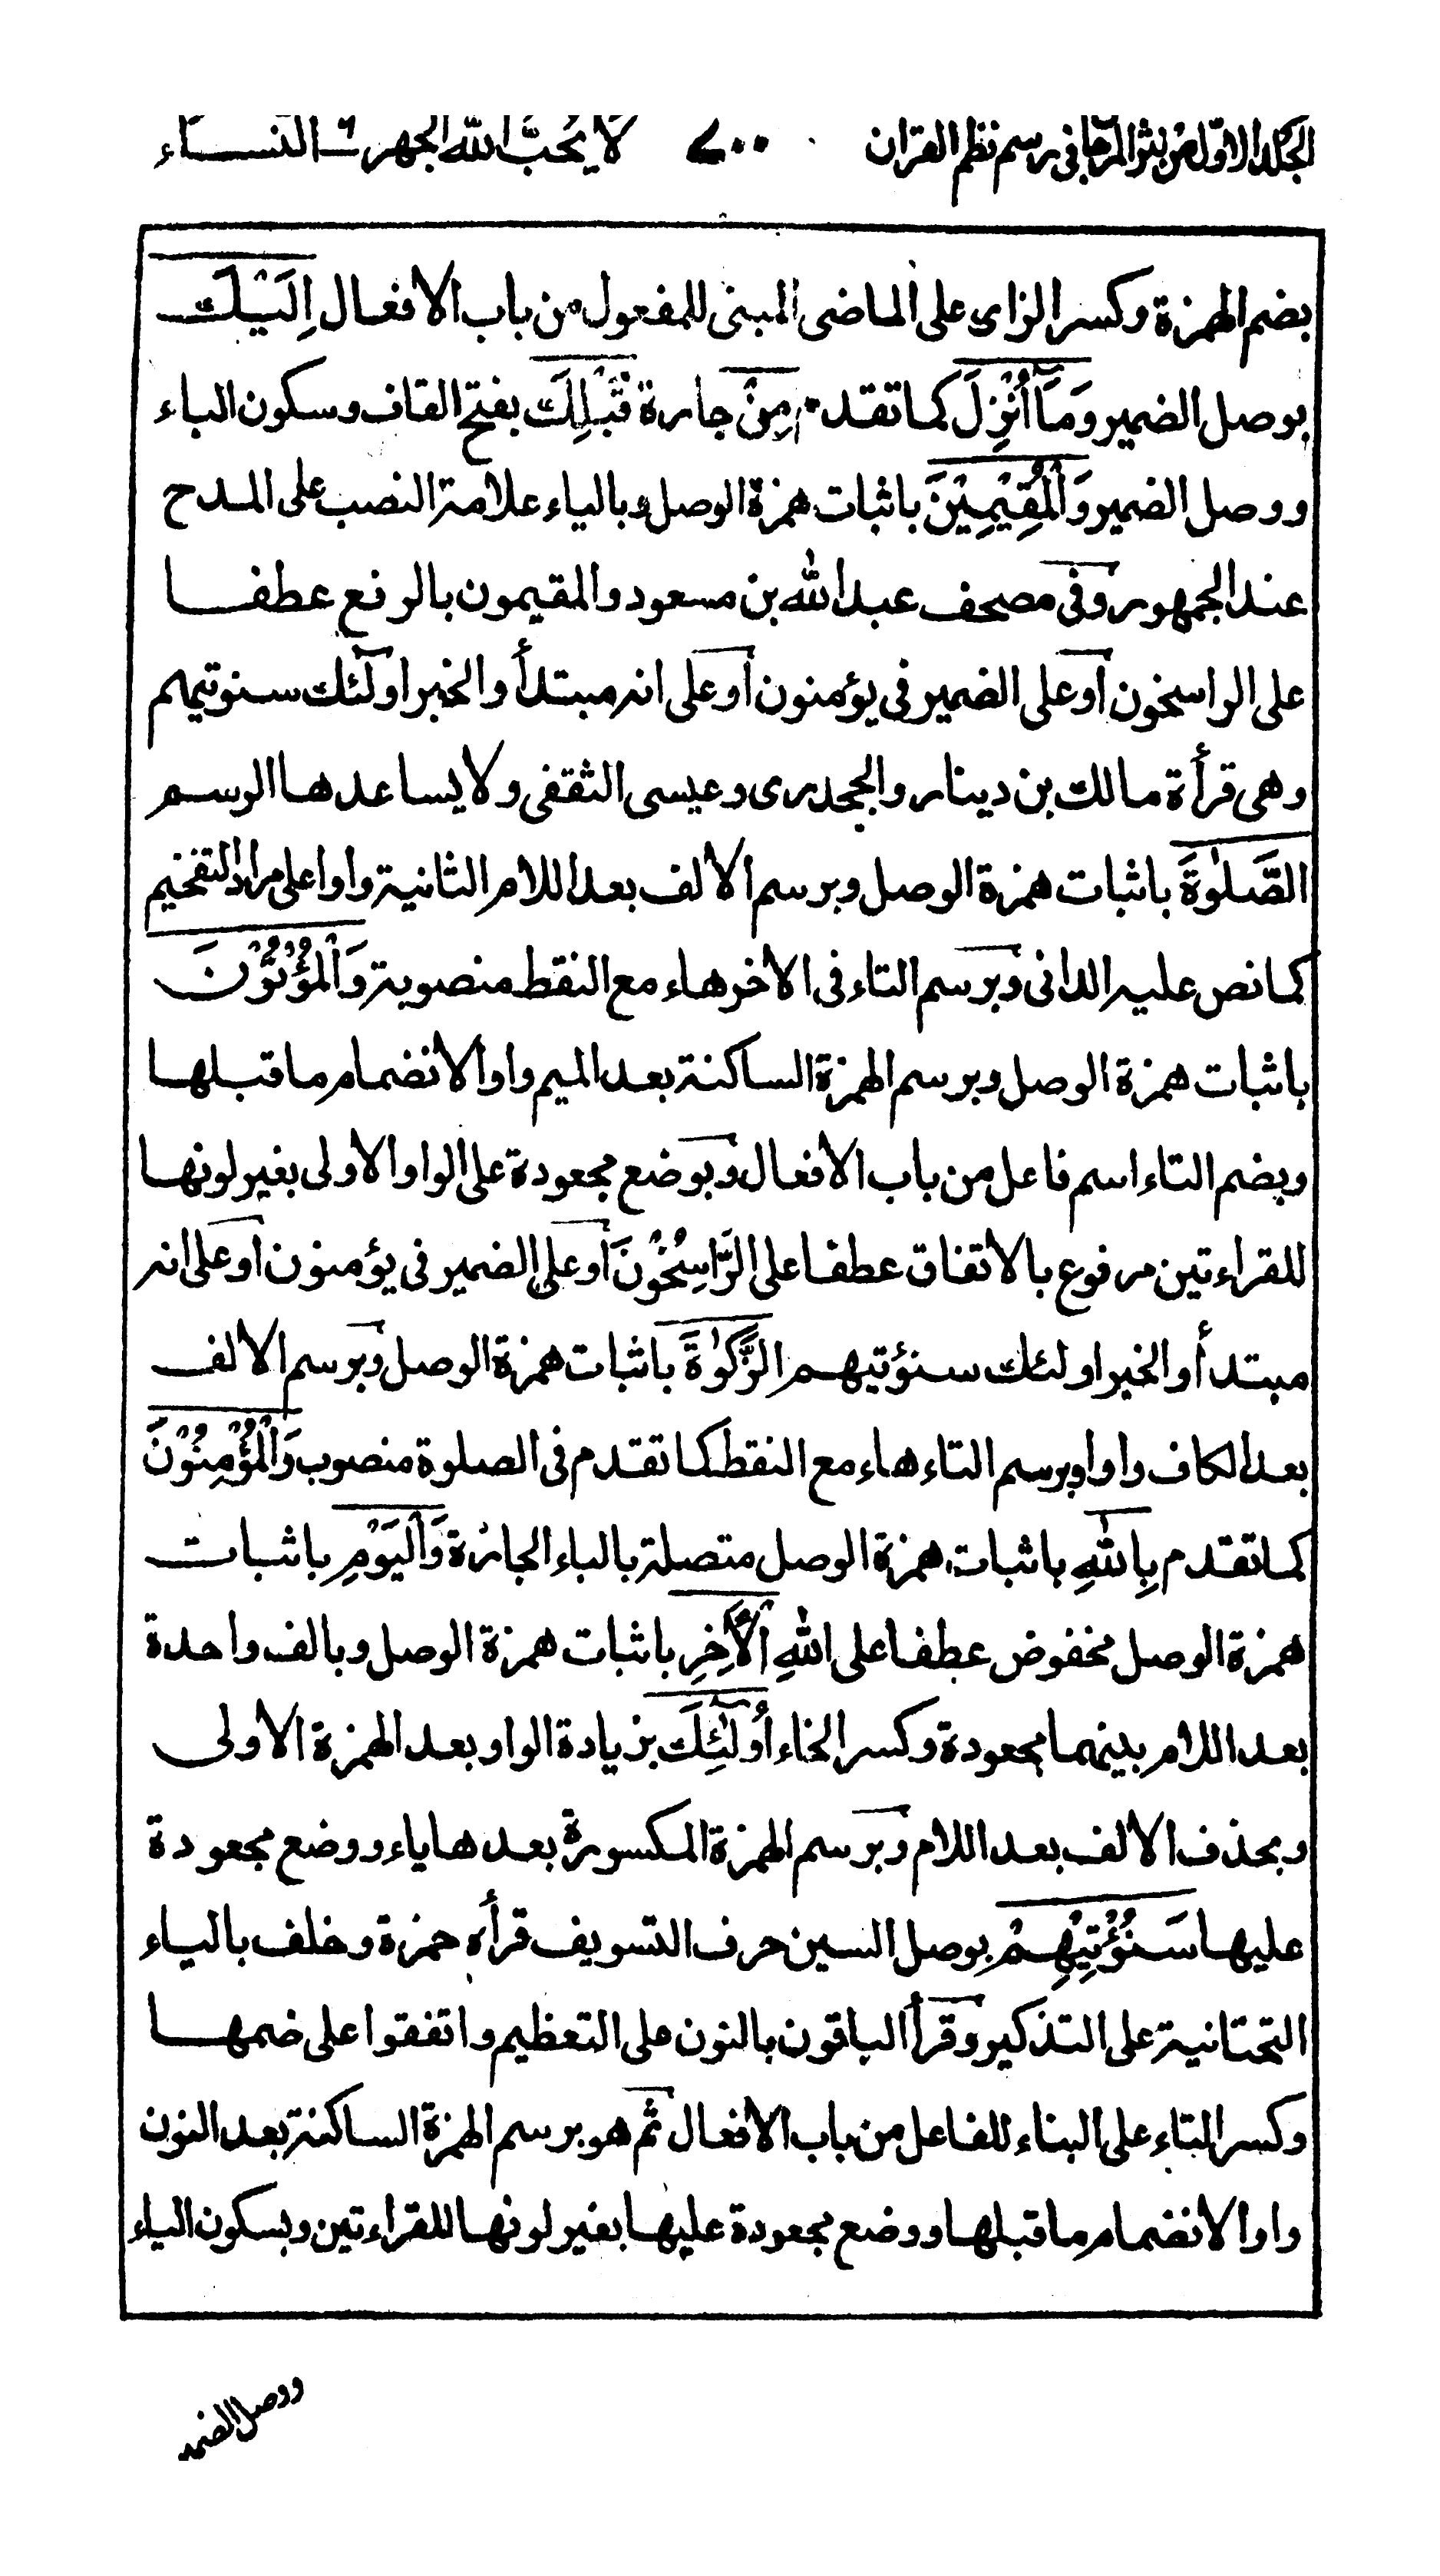 الجلد الاول من نثر المرجان فى رسم نظم القران ٧٠٠ لا يُحبُّ الله الجهر النساء
بضم الهمزة وكسر الزاى على الماضى المبنى للمفعول من باب الافعال اِلَيْكَ
بوصل الضمير وَمَآ اُنْزِلَ كما تقدم مِنْ جارة قَبْلِكَ بفتح القاف وسكون الباء
ووصل الضمير وَالْمُقِيْمِيْنَ باثبات همزة الوصل وبالياء علامة النصب على المدح
عند الجمهور وفى مصحف عبد الله بن مسعود والمقيمون بالرفع عطفا
على الراسخون اوعلى الضمير فى يؤمنون اوعلى انه مبتدأ والخبر اولٓئك سنوتيهم
وهى قرأة مالك بن دينار والجحدرى وعيسى الثقفى ولا يساعدها الرسم
الصَّلٰوةَ باثبات همزة الوصل وبرسم الالف بعد اللام الثانية واوا على مراد التفخيم
كما نص عليه الدانى وبرسم التاء فى الاخر هاء مع النقط منصوبة وَالْمُؤْتُوْنَ
باثبات همزة الوصل وبرسم الهمزة الساكنة بعد الميم واوا لانضمام ما قبلها
وبضم التاء اسم فاعل من باب الافعال وبوضع مجعودة على الواو الاولى بغير لونها
للقراءتين مرفوع بالاتفاق عطفا على الرَّاسِخُوْنَ اوعلى الضمير فى يؤمنون اوعلى انه
مبتدأ والخبر اولئك سنؤتيهم الزَّكٰوةَ باثبات همزة الوصل وبرسم الالف
بعد الكاف واوا وبرسم التاء هاء مع النقط كما تقدم فى الصلوة منصوب وَالْمُؤْمِنُوْنَ
كما تقدم بِاللهِ باثبات همزة الوصل متصلة بالباء الجارة وَالْيَوْمِ باثبات
همزة الوصل مخفوض عطفا على اللهِ الْاٰخِرِ باثبات همزة الوصل وبالف واحدة
بعد اللام بينهما مجعودة وكسر الخاء اُولٰٓئِكَ بزيادة الواو بعد الهمزة الاولى
وبحذف الالف بعد اللام وبرسم الهمزة المكسورة بعدها ياء ووضع مجعودة
عليها سَنُؤْتِيْهِمْ بوصل السين حرف التسويف قرأه حمزة وخلف بالياء
التحتانية على التذكير وقرأ الباقون بالنون على التعظيم واتفقوا على ضمها
وكسر التاء على البناء للفاعل من باب الافعال ثم هو برسم الهمزة الساكنة بعد النون
واوا لانضمام ما قبلها ووضع مجعودة عليها بغير لونها للقراءتين وبسكون الياء
ووصل الضمير